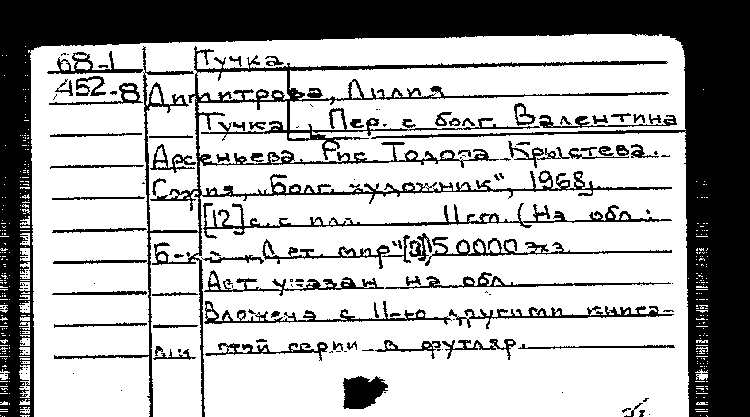 68-1 Тучка.
А52-8 Димитрова, Лилия
Тучка. Пер. с болг. Валентина
Арсеньева. Рис Тодора Крыстева.
София, „Болг. художник", 1968,
[12] с. с илл. 11см. (На обл.:
Б-ка „Дет. мир" 50000 экз
Авт. указан на обл.
Вложена с 11-ю другими книга-
ми этой серии в футляр.